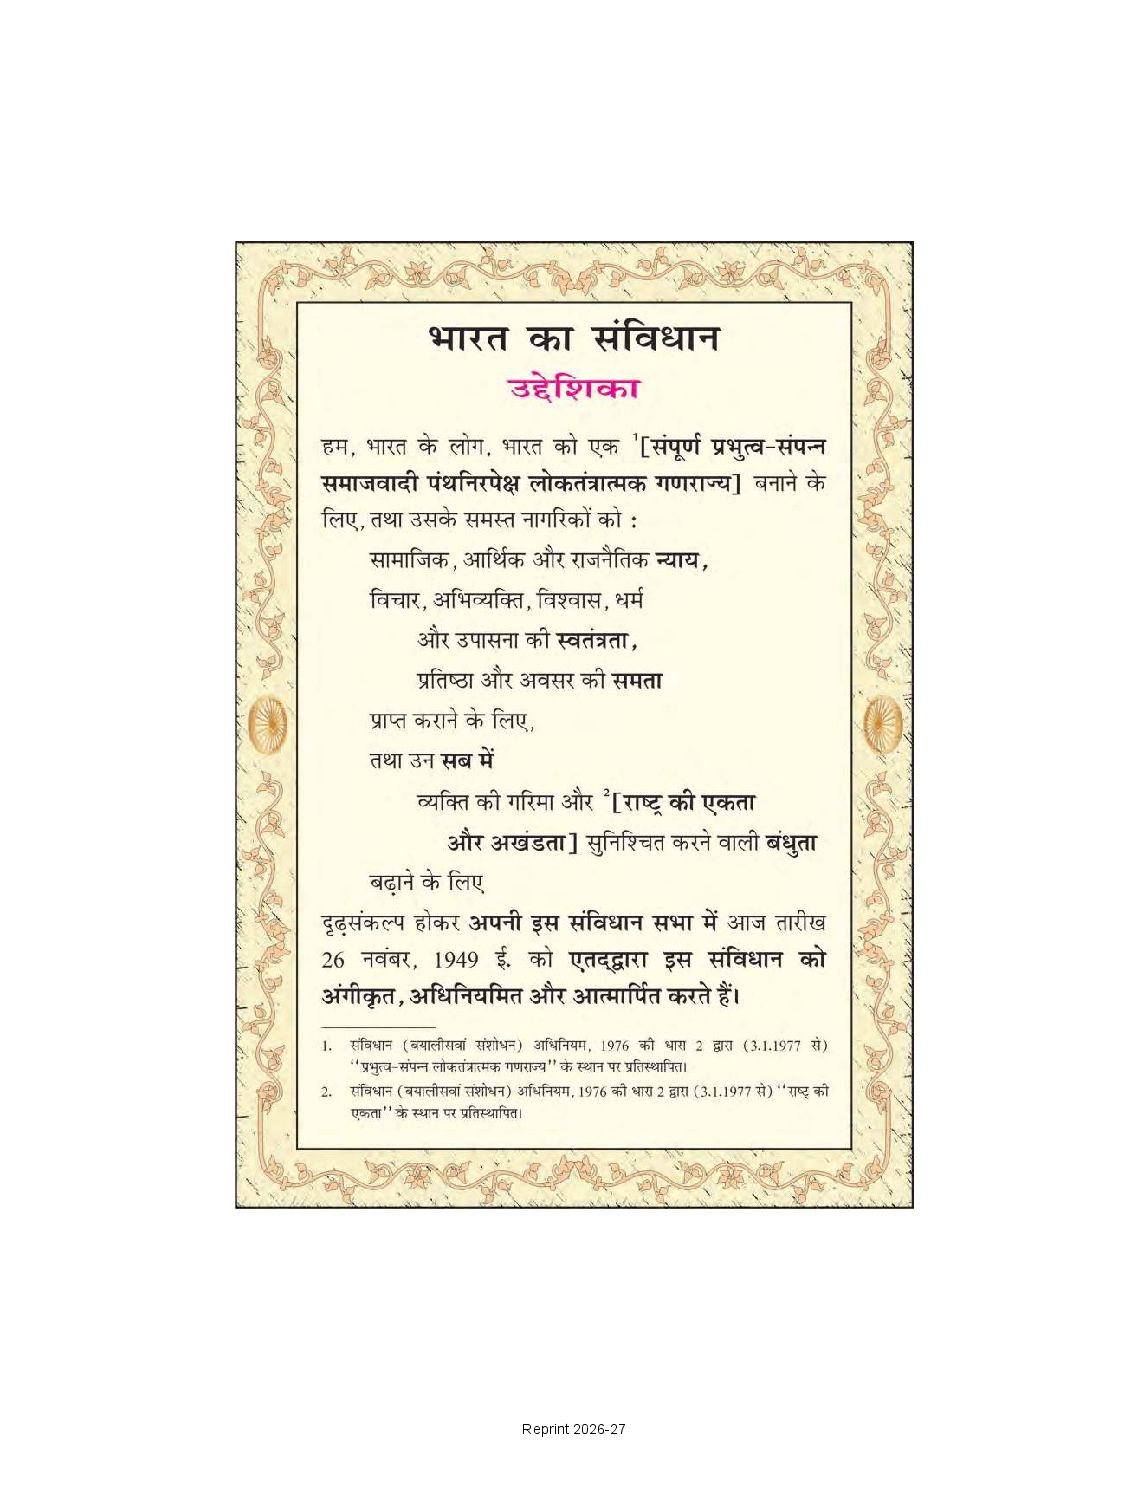 भारत का संविधान
उद्देशिका
हम, भारत के लोग, भारत को एक ¹[संपूर्ण प्रभुत्व-संपन्न
समाजवादी पंथनिरपेक्ष लोकतंत्रात्मक गणराज्य] बनाने के
लिए, तथा उसके समस्त नागरिकों को :
सामाजिक, आर्थिक और राजनैतिक न्याय,
विचार, अभिव्यक्ति, विश्वास, धर्म
और उपासना की स्वतंत्रता,
प्रतिष्ठा और अवसर की समता
प्राप्त कराने के लिए,
तथा उन सब में
व्यक्ति की गरिमा और ²[राष्ट्र की एकता
और अखंडता] सुनिश्चित करने वाली बंधुता
बढ़ाने के लिए
दृढ़संकल्प होकर अपनी इस संविधान सभा में आज तारीख
26 नवंबर, 1949 ई. को एतद्द्वारा इस संविधान को
अंगीकृत, अधिनियमित और आत्मार्पित करते हैं।
1. संविधान (बयालीसवां संशोधन) अधिनियम, 1976 की धारा 2 द्वारा (3.1.1977 से)
‘‘प्रभुत्व-संपन्न लोकतंत्रात्मक गणराज्य’’ के स्थान पर प्रतिस्थापित।
2. संविधान (बयालीसवां संशोधन) अधिनियम, 1976 की धारा 2 द्वारा (3.1.1977 से) ‘‘राष्ट्र की
एकता’’ के स्थान पर प्रतिस्थापित।
Reprint 2026-27